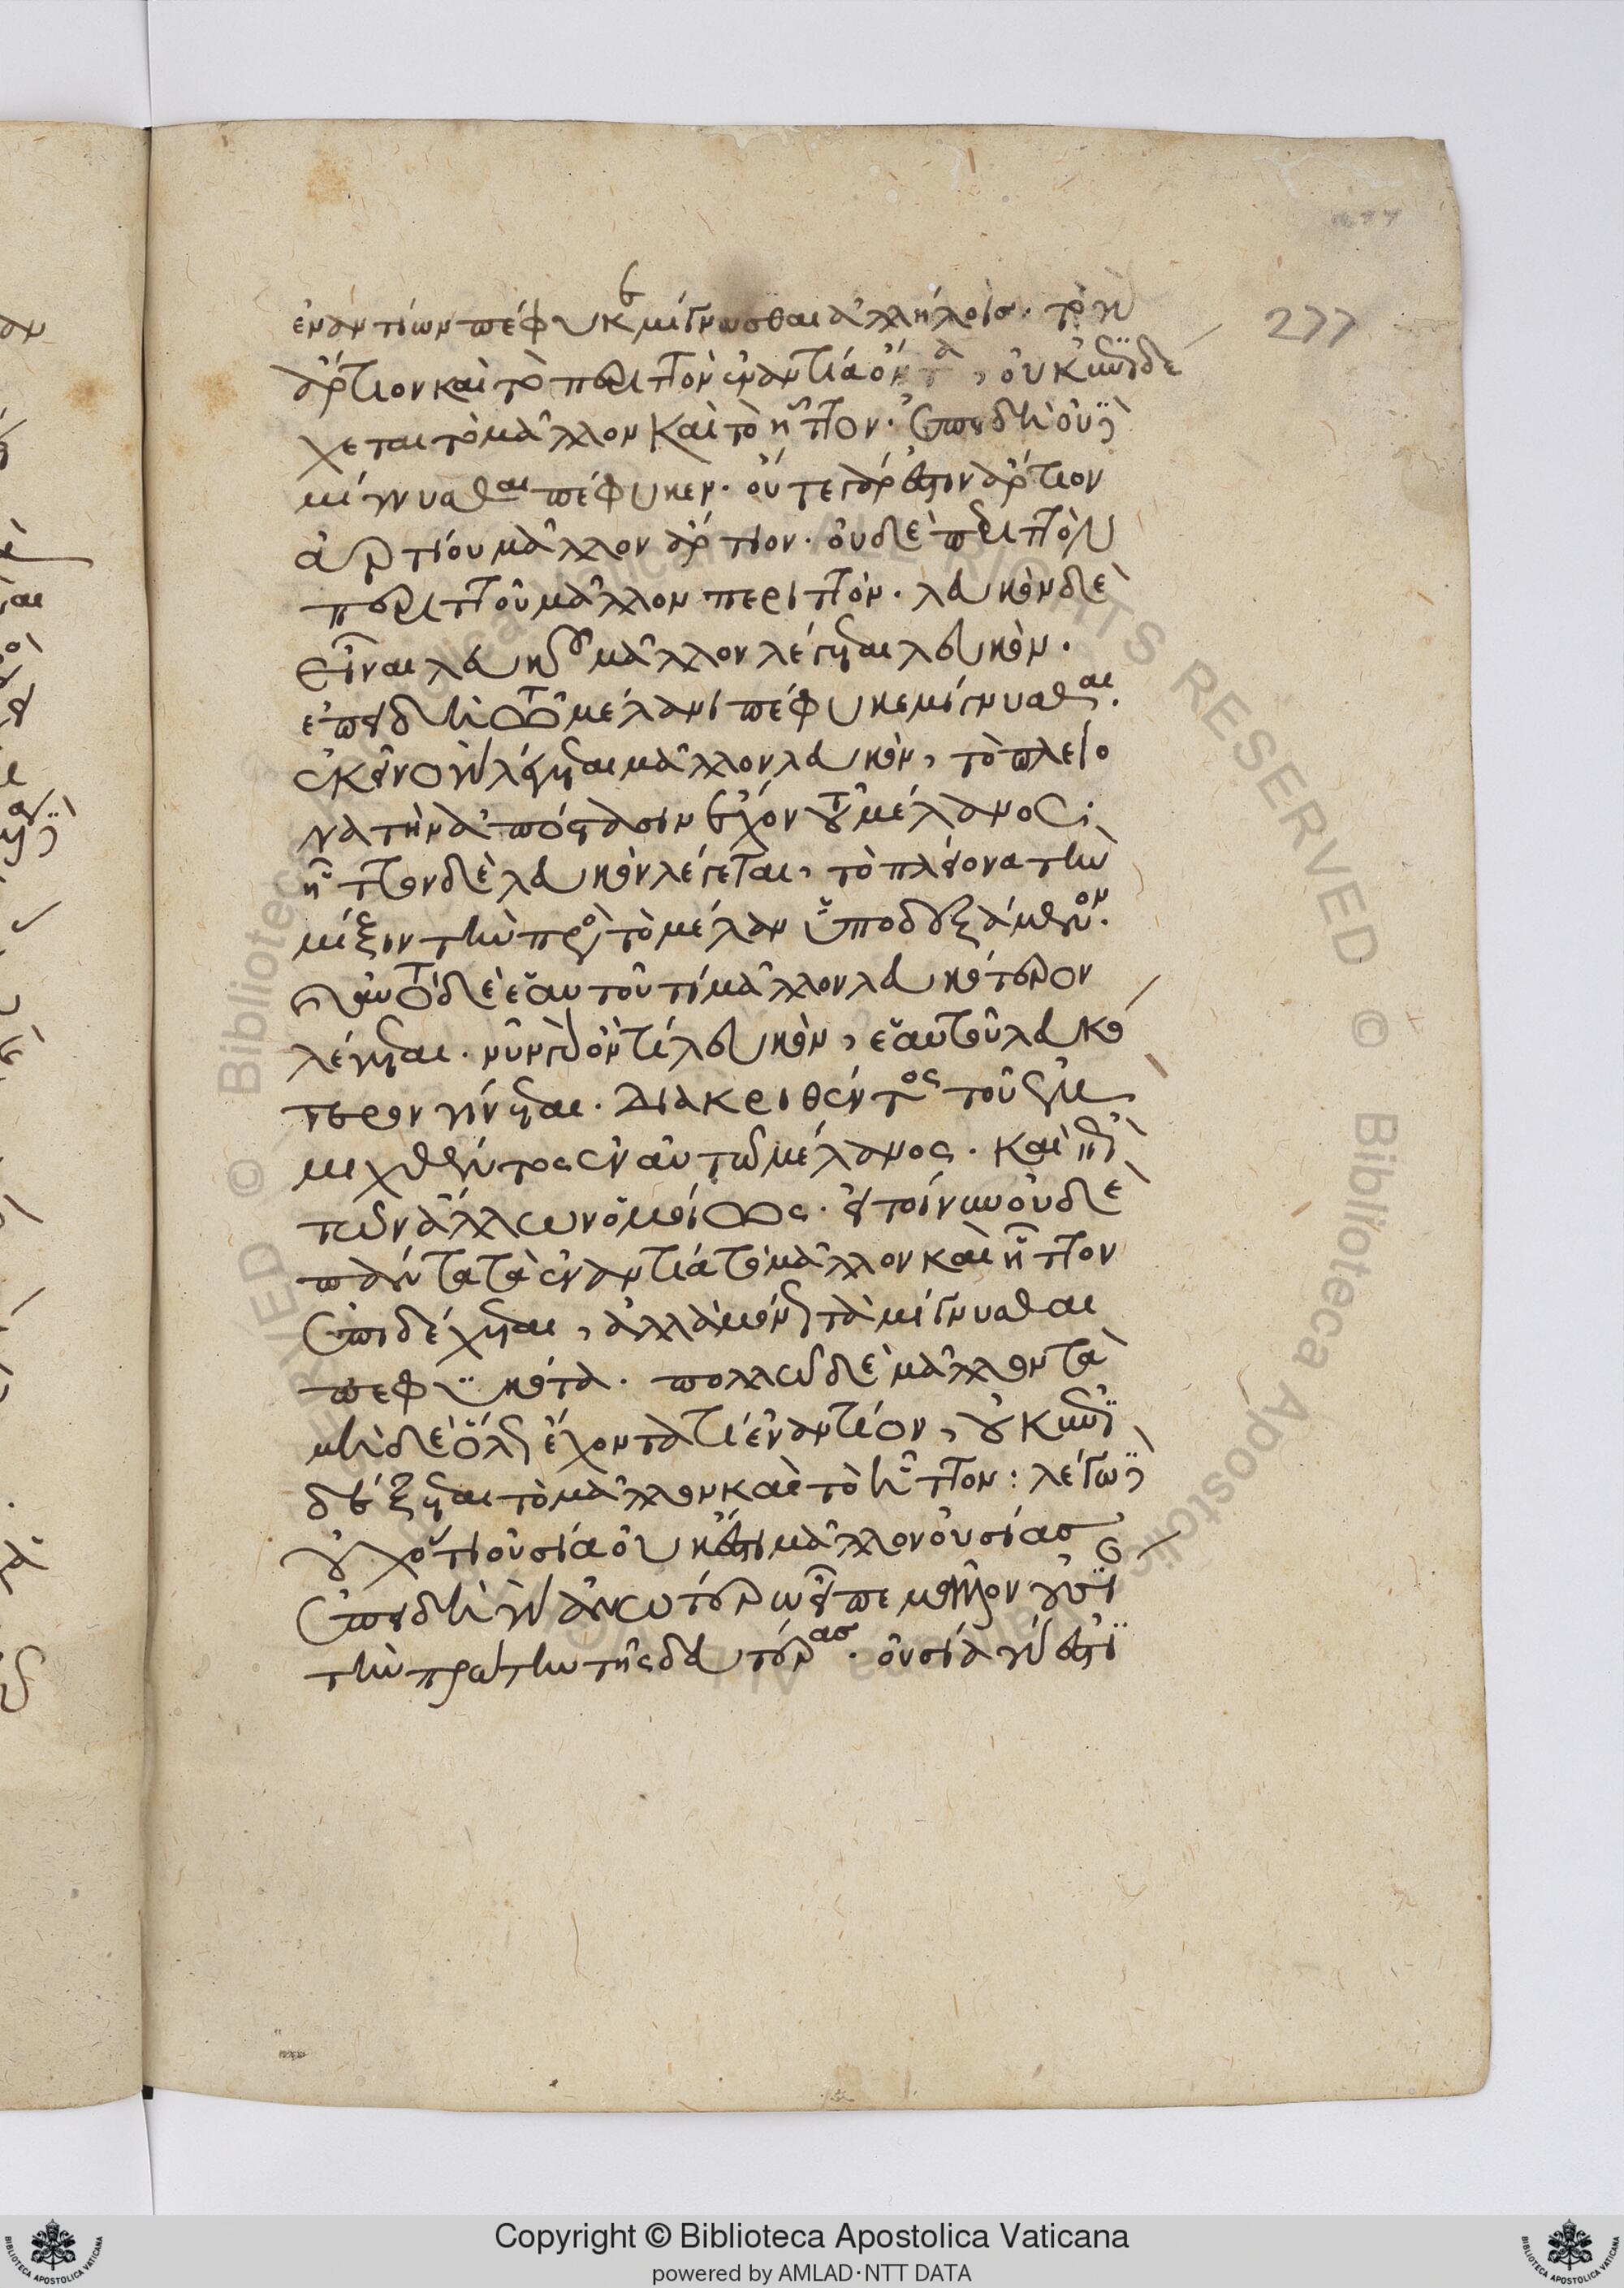 ἐναντίων πέφυκε μίγνυσθαι ἀλλήλοις. τὸ γὰρ
ἄρτιον καὶ τὸ περιττὸν ἐναντία ὄντα, οὐκ ἐπιδέ
χεται τὸ μᾶλλον καὶ τὸ ἧττον. ἐπειδὴ οὐ
μίγνυσθαι πέφυκεν. οὔτε γάρ ἐστιν ἄρτιον
ἀρτίου μᾶλλον ἄρτιον. οὐδὲ περιττὸν
περιττοῦ μᾶλλον περιττόν. λευκὸν δὲ
εἶναι λευκοῦ μᾶλλον λέγεται λευκόν.
ἐπειδὴ τῷ μέλανι πέφυκε μίγνυσθαι.
ἐκεῖνο γὰρ λέγεται μᾶλλον λευκόν, τὸ πλείο
να τὴν ἀπόστασιν ἔχον τοῦ μέλανος·
ἧττον δὲ λευκὸν λέγεται, τὸ πλείονα τὴν
μίξιν τὴν πρὸς τὸ μέλαν ὑποδεξάμενον.
αὐτὸ δὲ ἑαυτοῦ τί μᾶλλον λευκότερον
λέγεται. νῦν γὰρ ὄν τι λευκὸν, ἑαυτοῦ λευκό
τερον γίνεται. διακριθέντος τοῦ
μιχθέντος ἐν αὐτῷ μέλανος. καὶ ἐπὶ
τῶν ἄλλων ὁμοίως. εἰ τοίνυν οὐδὲ
πάντα τὰ ἐναντία τὸ μᾶλλον καὶ ἧττον
ἐπιδέχεται, ἀλλὰ μόνα τὰ μίγνυσθαι
πεφυκότα. πολλῷ δὲ μᾶλλον τὰ
μηδὲ ὅλως ἔχοντά τι ἐναντίον, οὐκ ἐπι
δέξεται τὸ μᾶλλον καὶ τὸ ἧττον: λέγω
οὐχ ὅτι οὐσία οὐκ ἔστι μᾶλλον οὐσίας
ἐπειδὴ γὰρ ἀνωτέρω εἶπε μᾶλλον οὐσίαν
τὴν πρώτην τῆς δευτέρας. οὐσία γάρ ἐστι
277
Copyright © Biblioteca Apostolica Vaticana
powered by AMLAD·NTT DATA